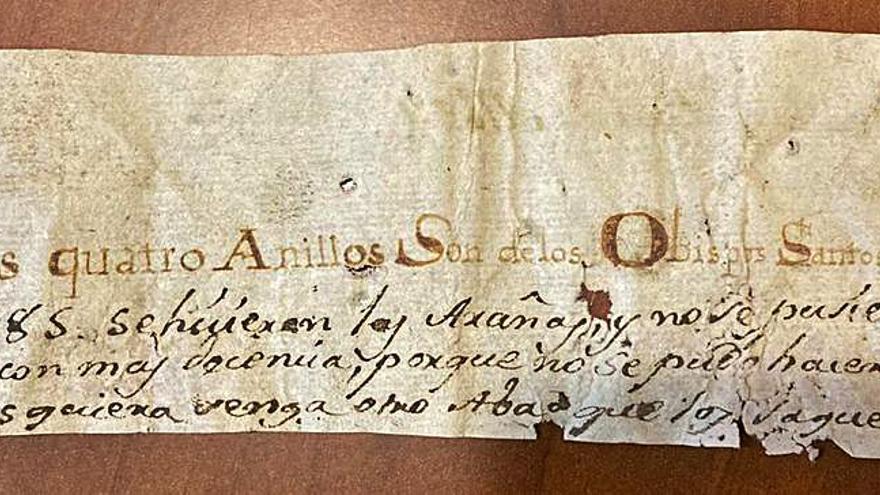 s quatro Anillos Son de los Obispos Santos
85. se hiuieron las Arañas, y no se pusie
con mas docencia, porque no se pudo hacer
s quiera venga otro Abad que los saque